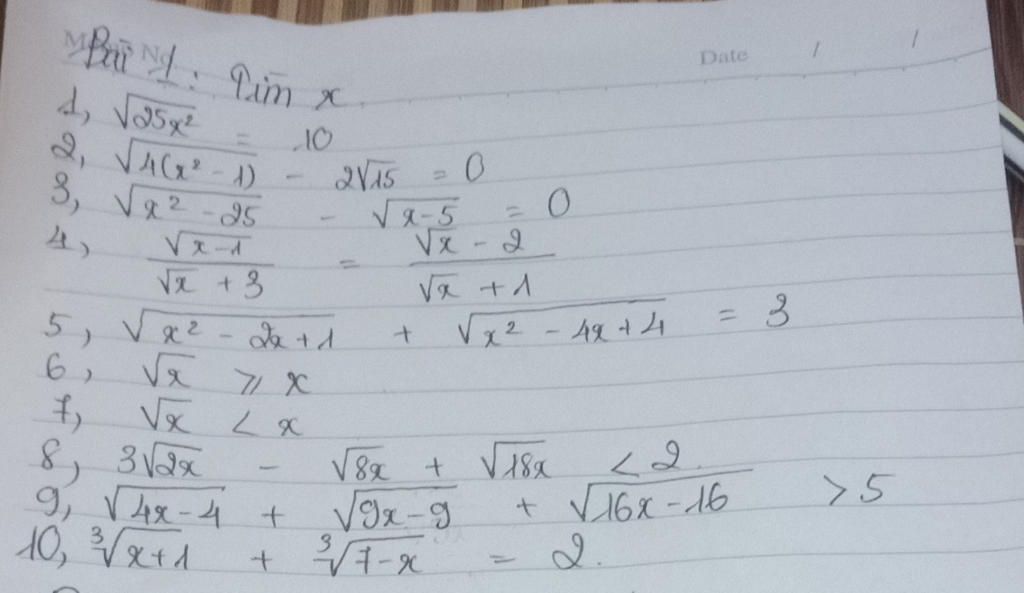 Bài 1: Tìm x
Date / /
1, √25x² = 10
2, √4(x² - 1) - 2√15 = 0
3, √x² - 25 - √x - 5 = 0
4, √x - 1 / √x + 3 = √x - 2 / √x + 1
5, √x² - 2x + 1 + √x² - 4x + 4 = 3
6, √x ⩾ x
7, √x < x
8, 3√2x - √8x + √18x < 2
9, √4x - 4 + √9x - 9 + √16x - 16 > 5
10, ∛x + 1 + ∛7 - x = 2.